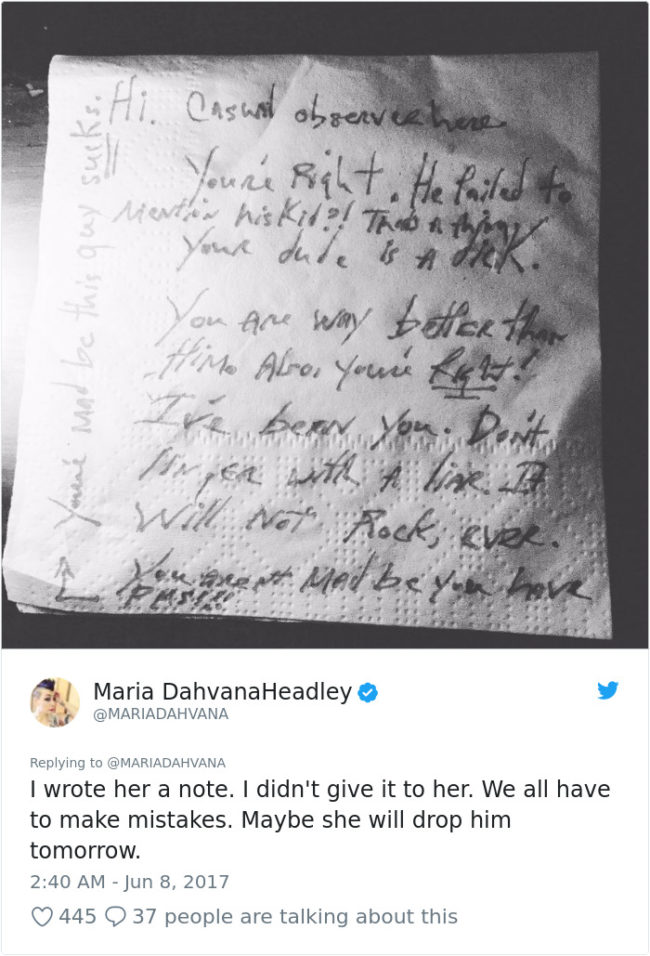 Hi. Casual observer here
You're Right. He failed to
Mention his Kid?! That's a thing,
Your dude is A DICK.
You Are way better than
Him. Also, you're Right!
I've been you. Don't
linger with A liar. It
Will Not Rock, ever.
You aren't Mad bc you have
PMS!!!!
You're Mad bc this guy sucks.
Maria DahvanaHeadley
@MARIADAHVANA
Replying to @MARIADAHVANA
I wrote her a note. I didn't give it to her. We all have
to make mistakes. Maybe she will drop him
tomorrow.
2:40 AM - Jun 8, 2017
445 37 people are talking about this